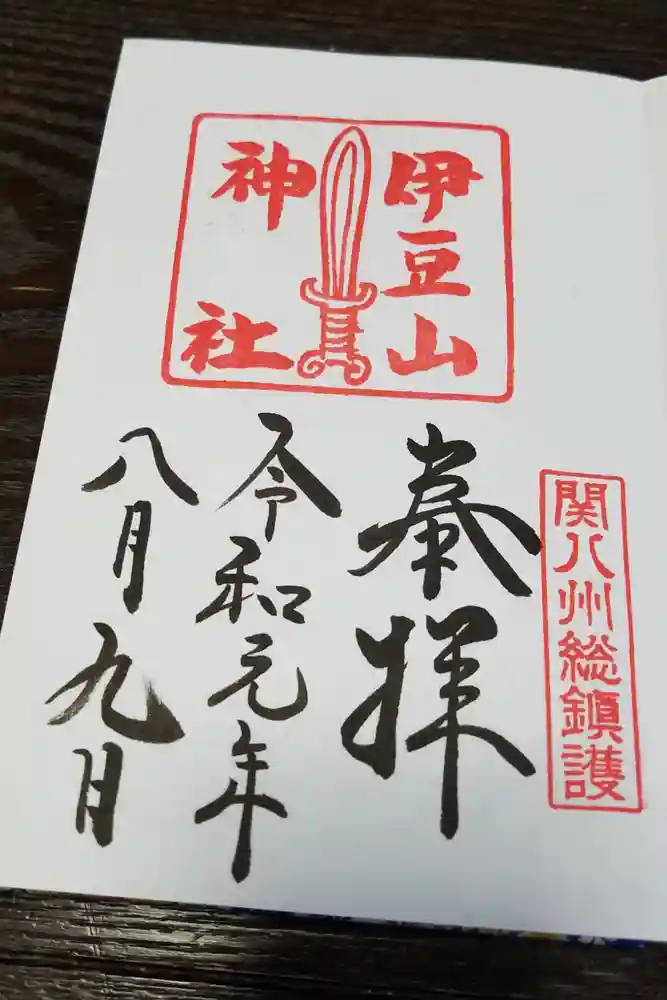 関八州総鎮護
伊豆山
神社
奉拝
令和元年
八月九日